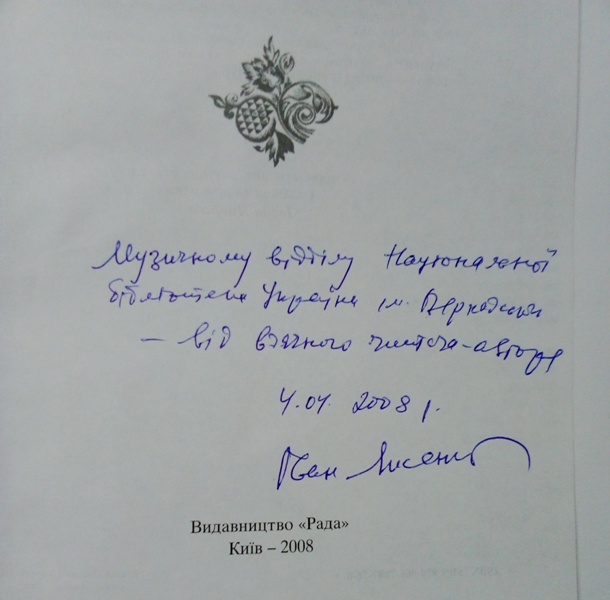 Музичному відділу Національної
бібліотеки України ім. Вернадського
— від вдячного читача-автора
4.04. 2008 р.
Іван Лисенко
Видавництво «Рада»
Київ – 2008